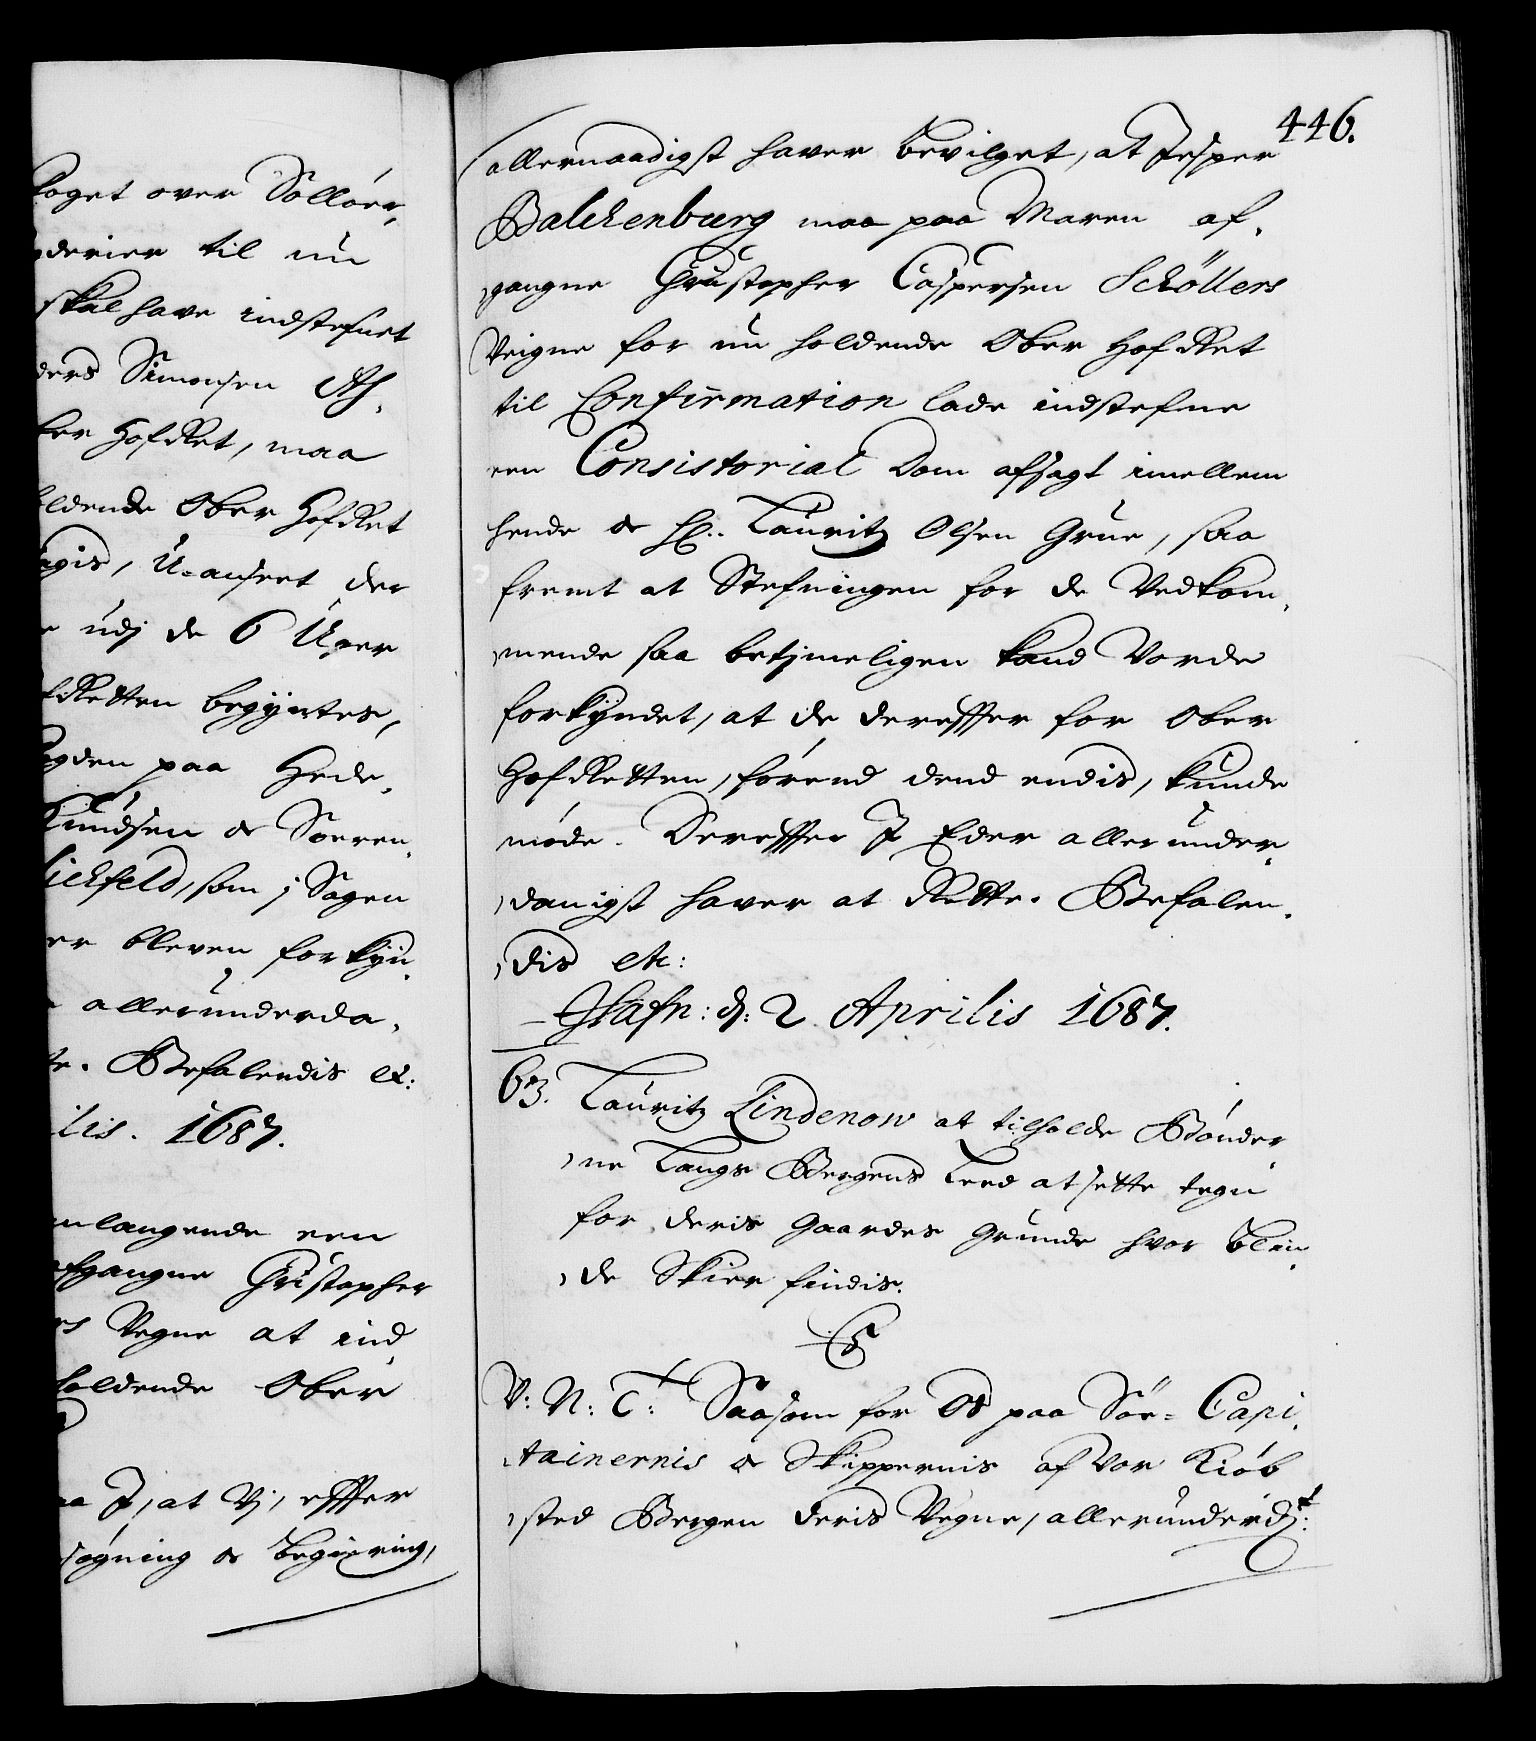 toget over Sollöer,
derier til nu
skal have indstefnet
ders Simonsen As,
ber HofRet, maa
ldende Ober HofRet
agis, U-anseet der
udj de 6 Uger
fRetten begyntes,
gden paa Hede,
Knudsen oc Soeren,
lichfeld, som j Sagen
er bleven forkyn,
allerunderda,
te. Befalendis etc:
ilis. 1687.
nlangende een
afgangne Christopher
es Vegne at ind
holdende Ober
aa J, at Vj, effter
søgning oc Begiering,
446.
allernaadigst haver bevilget, at Jesper
Balchenburg maa paa Maren af,
gangne Christopher Caspersen Schöllers
Veigne for nu holdende Ober HofRet
til Confirmation lade indstefne
een Consistorial Dom afsagt imellem
hende oc Hr. Lauritz Olsen Grue, saa
fremt at Stefningen for de Vedkom,
mende saa betjmeligen kand Vorde
forkyndet, at de dereffter for Ober
HofRetten, förend dend endis, kunde
møde. Dereffter J Eder allerunder,
danigst haver at Rette. Befalen,
dis etc:
Hafn: d: 2 Aprilis 1687.
63. Lauritz Lindenow at tilholde Bönder
ne Langs Bergens Leed at sette tegn
for deris Gaardes Grunde hvor blin,
de Skier findis.
C5
V: N: T: Saasom for Os paa Söe= Capi,
tainernis oc Skippernis af Vor Kiöb
sted Bergen deris Vegne, allerunderdst: